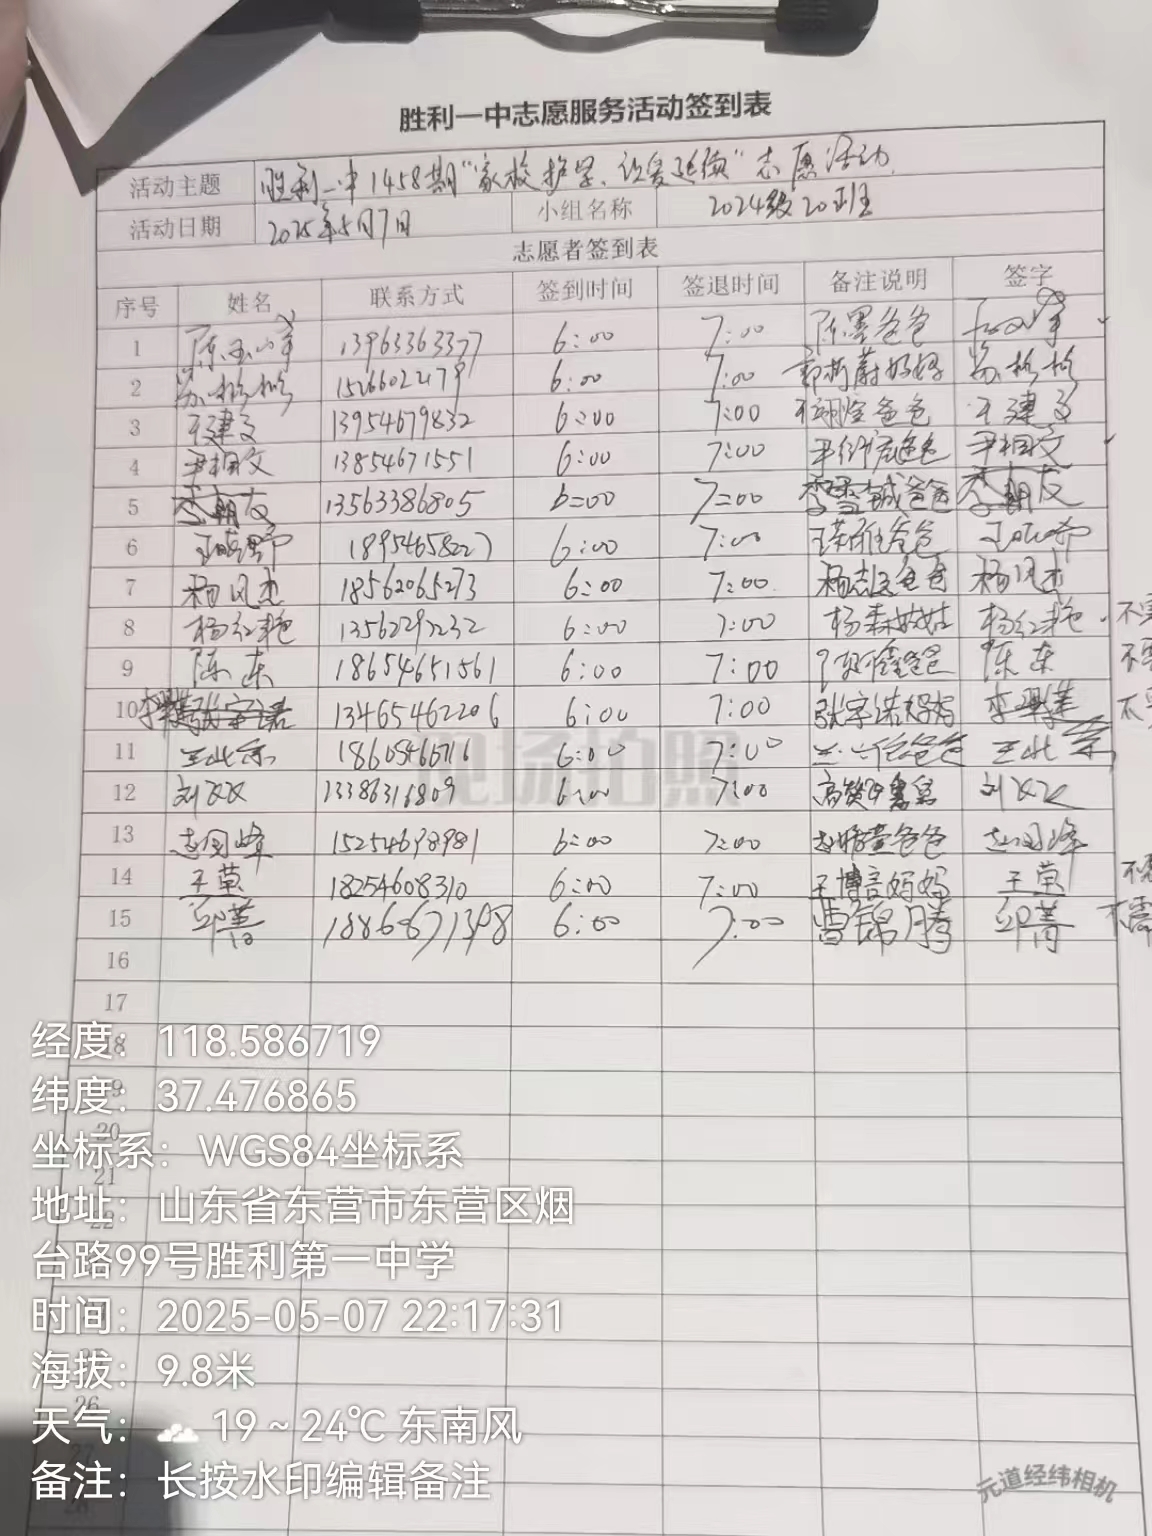 胜利一中志愿服务活动签到表
活动主题 胜利一中1458期“家校护学、让爱延续”志愿活动
活动日期 2025年5月7日 小组名称 2024级20班
志愿者签到表
序号 姓名 联系方式 签到时间 签退时间 备注说明 签字
1 陈玉峰 13963363377 6:00 7:00 陈墨爸爸
2 15266022179 6:00 7:00 妈妈
3 王建文 13954679832 6:00 7:00 爸爸 王建文
4 尹相文 13854671551 6:00 7:00 爸爸 尹相文
5 李朝友 13563386805 6:00 7:00 李雪毓爸爸 李朝友
6 18954658227 6:00 7:00 爸爸
7 杨风杰 18562065273 6:00 7:00 杨志远爸爸 杨风杰
8 杨红艳 13562292232 6:00 7:00 杨森姑姑 杨红艳 不
9 陈东 18654651561 6:00 7:00 爸爸 陈东 不
10 张字诺 13465462206 6:00 7:00 张字诺妈妈 不
11 18605466716 6:00 7:00 爸爸
12 刘 13386316809 6:00 7:00 刘
13 国峰 15254698981 6:00 7:00 爸爸 国峰
14 王草 18254608310 6:00 7:00 王博言妈妈 王草 不
15 邱菁 18866671398 6:00 7:00 曹锦腾 邱菁 不需
16
17
18
经度：118.586719
19
纬度：37.476865
20
坐标系：WGS84坐标系
21
地址：山东省东营市东营区烟
22
台路99号胜利第一中学
时间：2025-05-07 22:17:31
海拔：9.8米
26
天气： 19~24℃ 东南风
27
备注：长按水印编辑备注
28
现场拍照
元道经纬相机